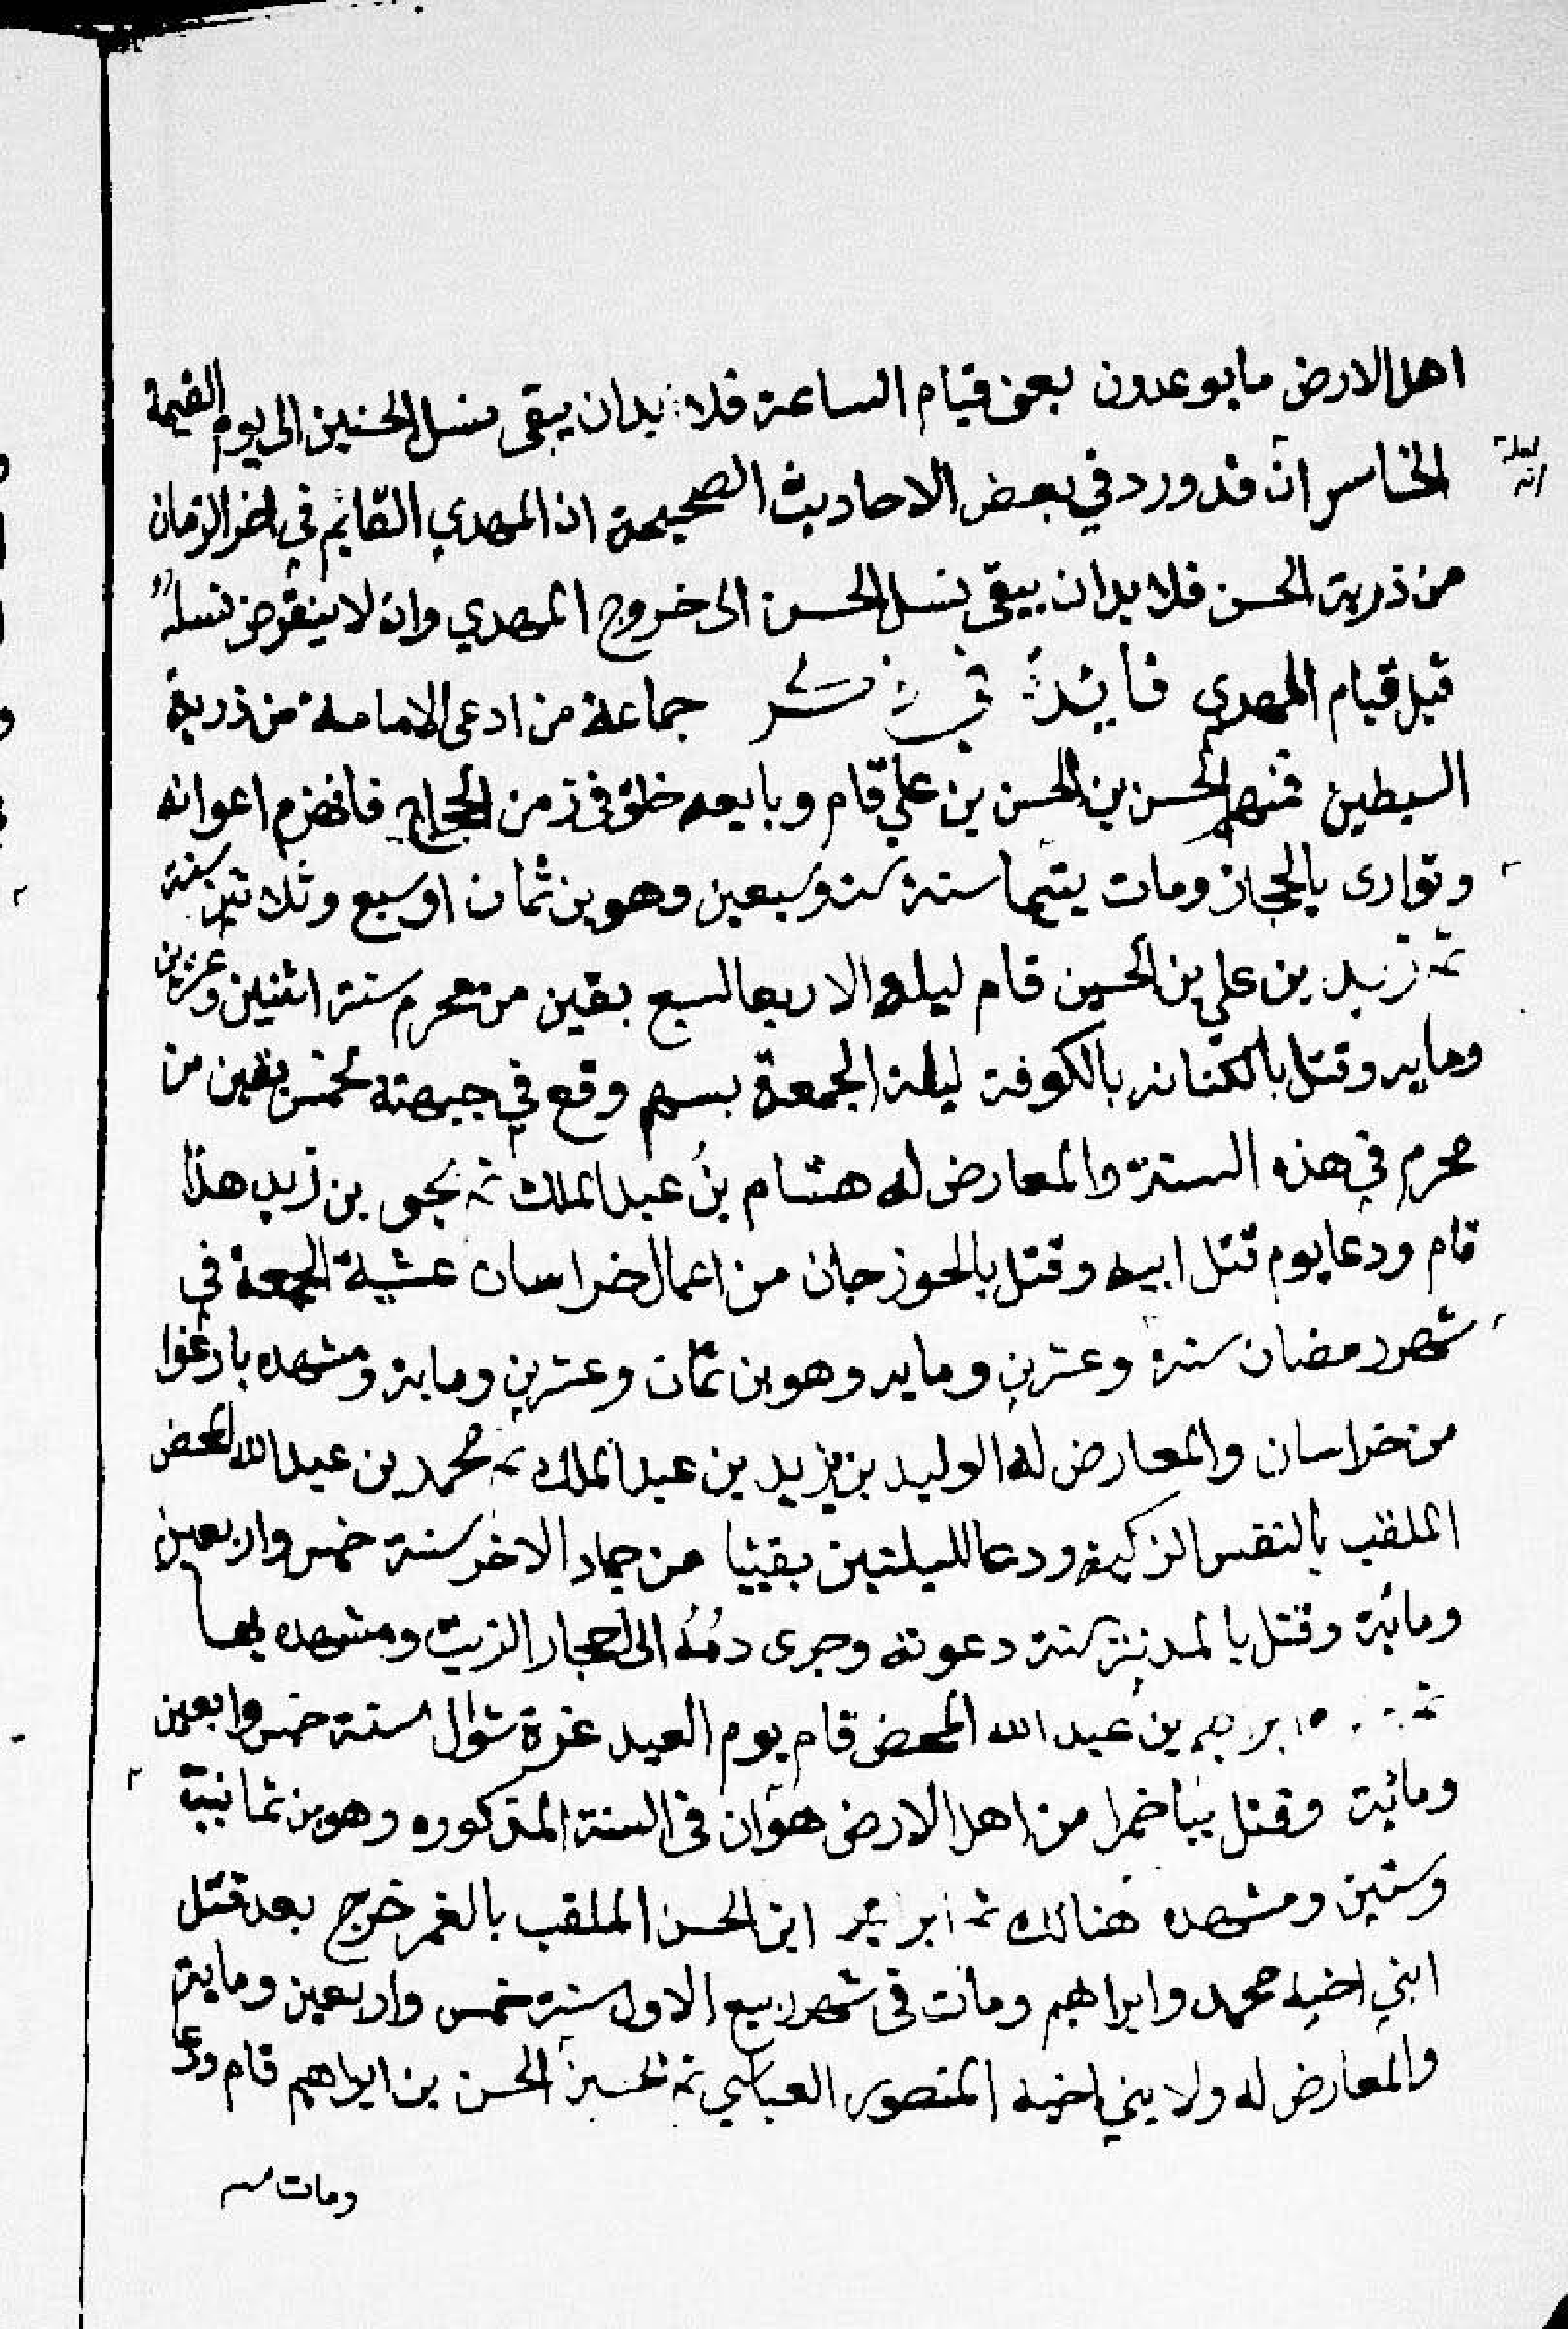 اهل الارض ما يوعدون يعنى قيام الساعة فلا بد ان يبقى نسل الحسنين الى يوم القيمة
الخامس ان قد ورد في بعض الاحاديث الصحيحة ان المهدي القائم في اخر الزمان
من ذرية الحسن فلا بد ان يبقى نسل الحسن الى خروج المهدي وان لا ينقرض نسله
قبل قيام المهدي فايدة في ذكر جماعة من ادعى الامامة من ذرية
السبطين فمنهم الحسن بن الحسن بن علي قام وبايعه خلق في زمن الحجاج فانهزم اعوانه
وتوارى بالحجاز ومات سنة وسبعين وهو بن ثمان او سبع وثلاثين سنة
ثم زيد بن علي بن الحسين قام ليلة الاربعا لسبع بقين من محرم سنة اثنين وعشرين
ومايه وقتل بالكناسه بالكوفة ليلة الجمعة بسهم وقع في جبهته لخمس بقين من
محرم في هذه السنة والمعارض له هشام بن عبد الملك ثم يحيى بن زيد هذا
قام ودعا يوم قتل ابيه وقتل بالجوزجان من اعمال خراسان عشية الجمعة في
شهر رمضان سنة وعشرين ومايه وهو بن ثمان وعشرين وماية ومشهده بارغوا
من خراسان والمعارض له الوليد بن يزيد بن عبد الملك ثم محمد بن عبد الله المحض
الملقب بالنفس الزكيه ودعا لليلتين بقيتا من جماد الاخر سنة خمس واربعين
ومائة وقتل بالمدينة سنة دعوته وجرى دمه الى احجار الزيت ومشهده بها
ثم ابرهيم بن عبد الله المحض قام يوم العيد غرة شوال سنة خمس وابعين
ومائة وقتل بباخمرا من اهل الارض هوان في السنة المذكوره وهو بن ثمانية
وستين ومشهده هنالك ثم ابن الحسن الملقب بالغمر خرج بعد قتل
ابني اخيه محمد وابراهيم ومات في شهر ربيع الاول سنة خمس واربعين وماية
والمعارض له ولا بني اخيه المنصور العباسي ثم الحسن بن ابراهيم قام ودعا
ومات